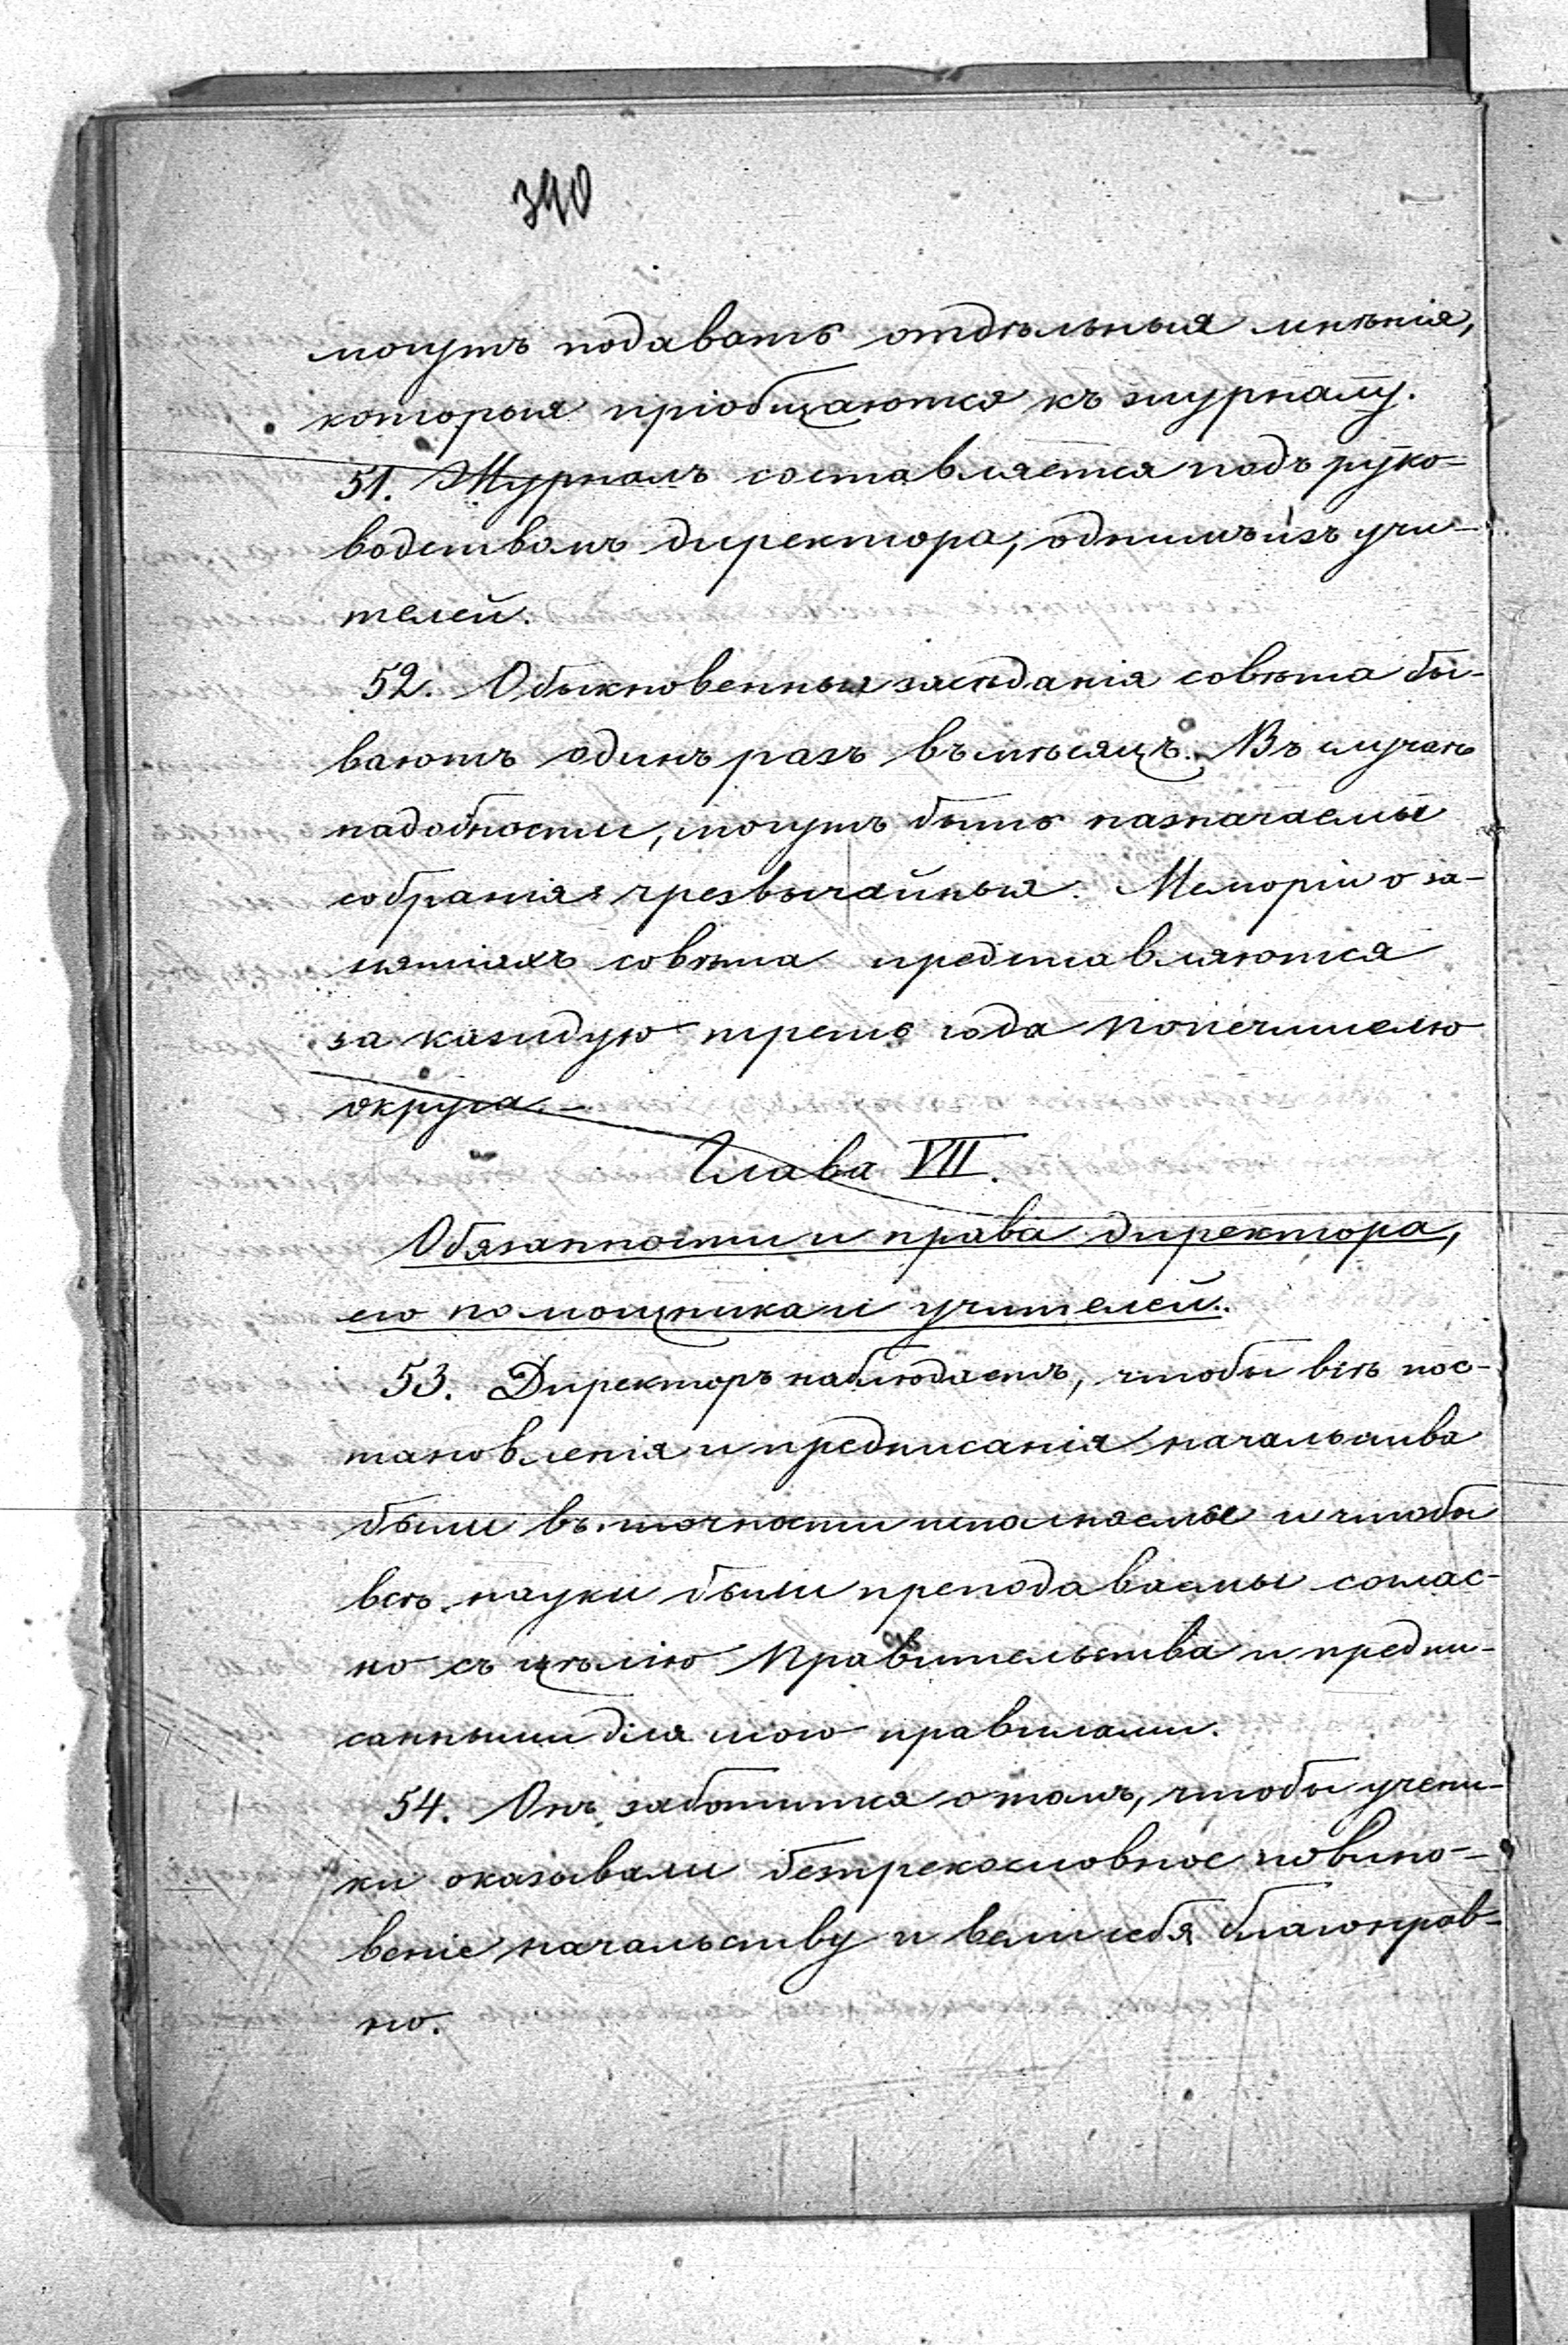 340
могутъ подавать отдѣльныя мнѣнія,
которыя пріобщаются къ журналу.
51. Журналъ составляется подъ руко=
водствомъ директора, однимъ изъ учи-
телей.
52. Обыкновенныя засѣданія совѣта бы-
ваютъ одинъ разъ въ мѣсяцъ. Въ случаѣ
надобности, могутъ быть назначаемы
собранія чрезвычайныя. Меморіи о за-
нятіяхъ совѣта представляются
за каждую треть года Попечителю
округа.—
Глава VII.
Обязанности и права директора,
его помощника и учителей.
53. Директоръ наблюдаетъ, чтобы всѣ пос-
тановленія и предписанія начальства
были въ точности исполняемы и чтобы
всѣ науки были преподаваемы соглас-
но съ цѣлію Правительства и предпи-
санными для того правилами.
54. Онъ заботится о томъ, чтобы учени-
ки оказывали безпрекословное повино-
веніе начальству и вели себя благонрав-
но.